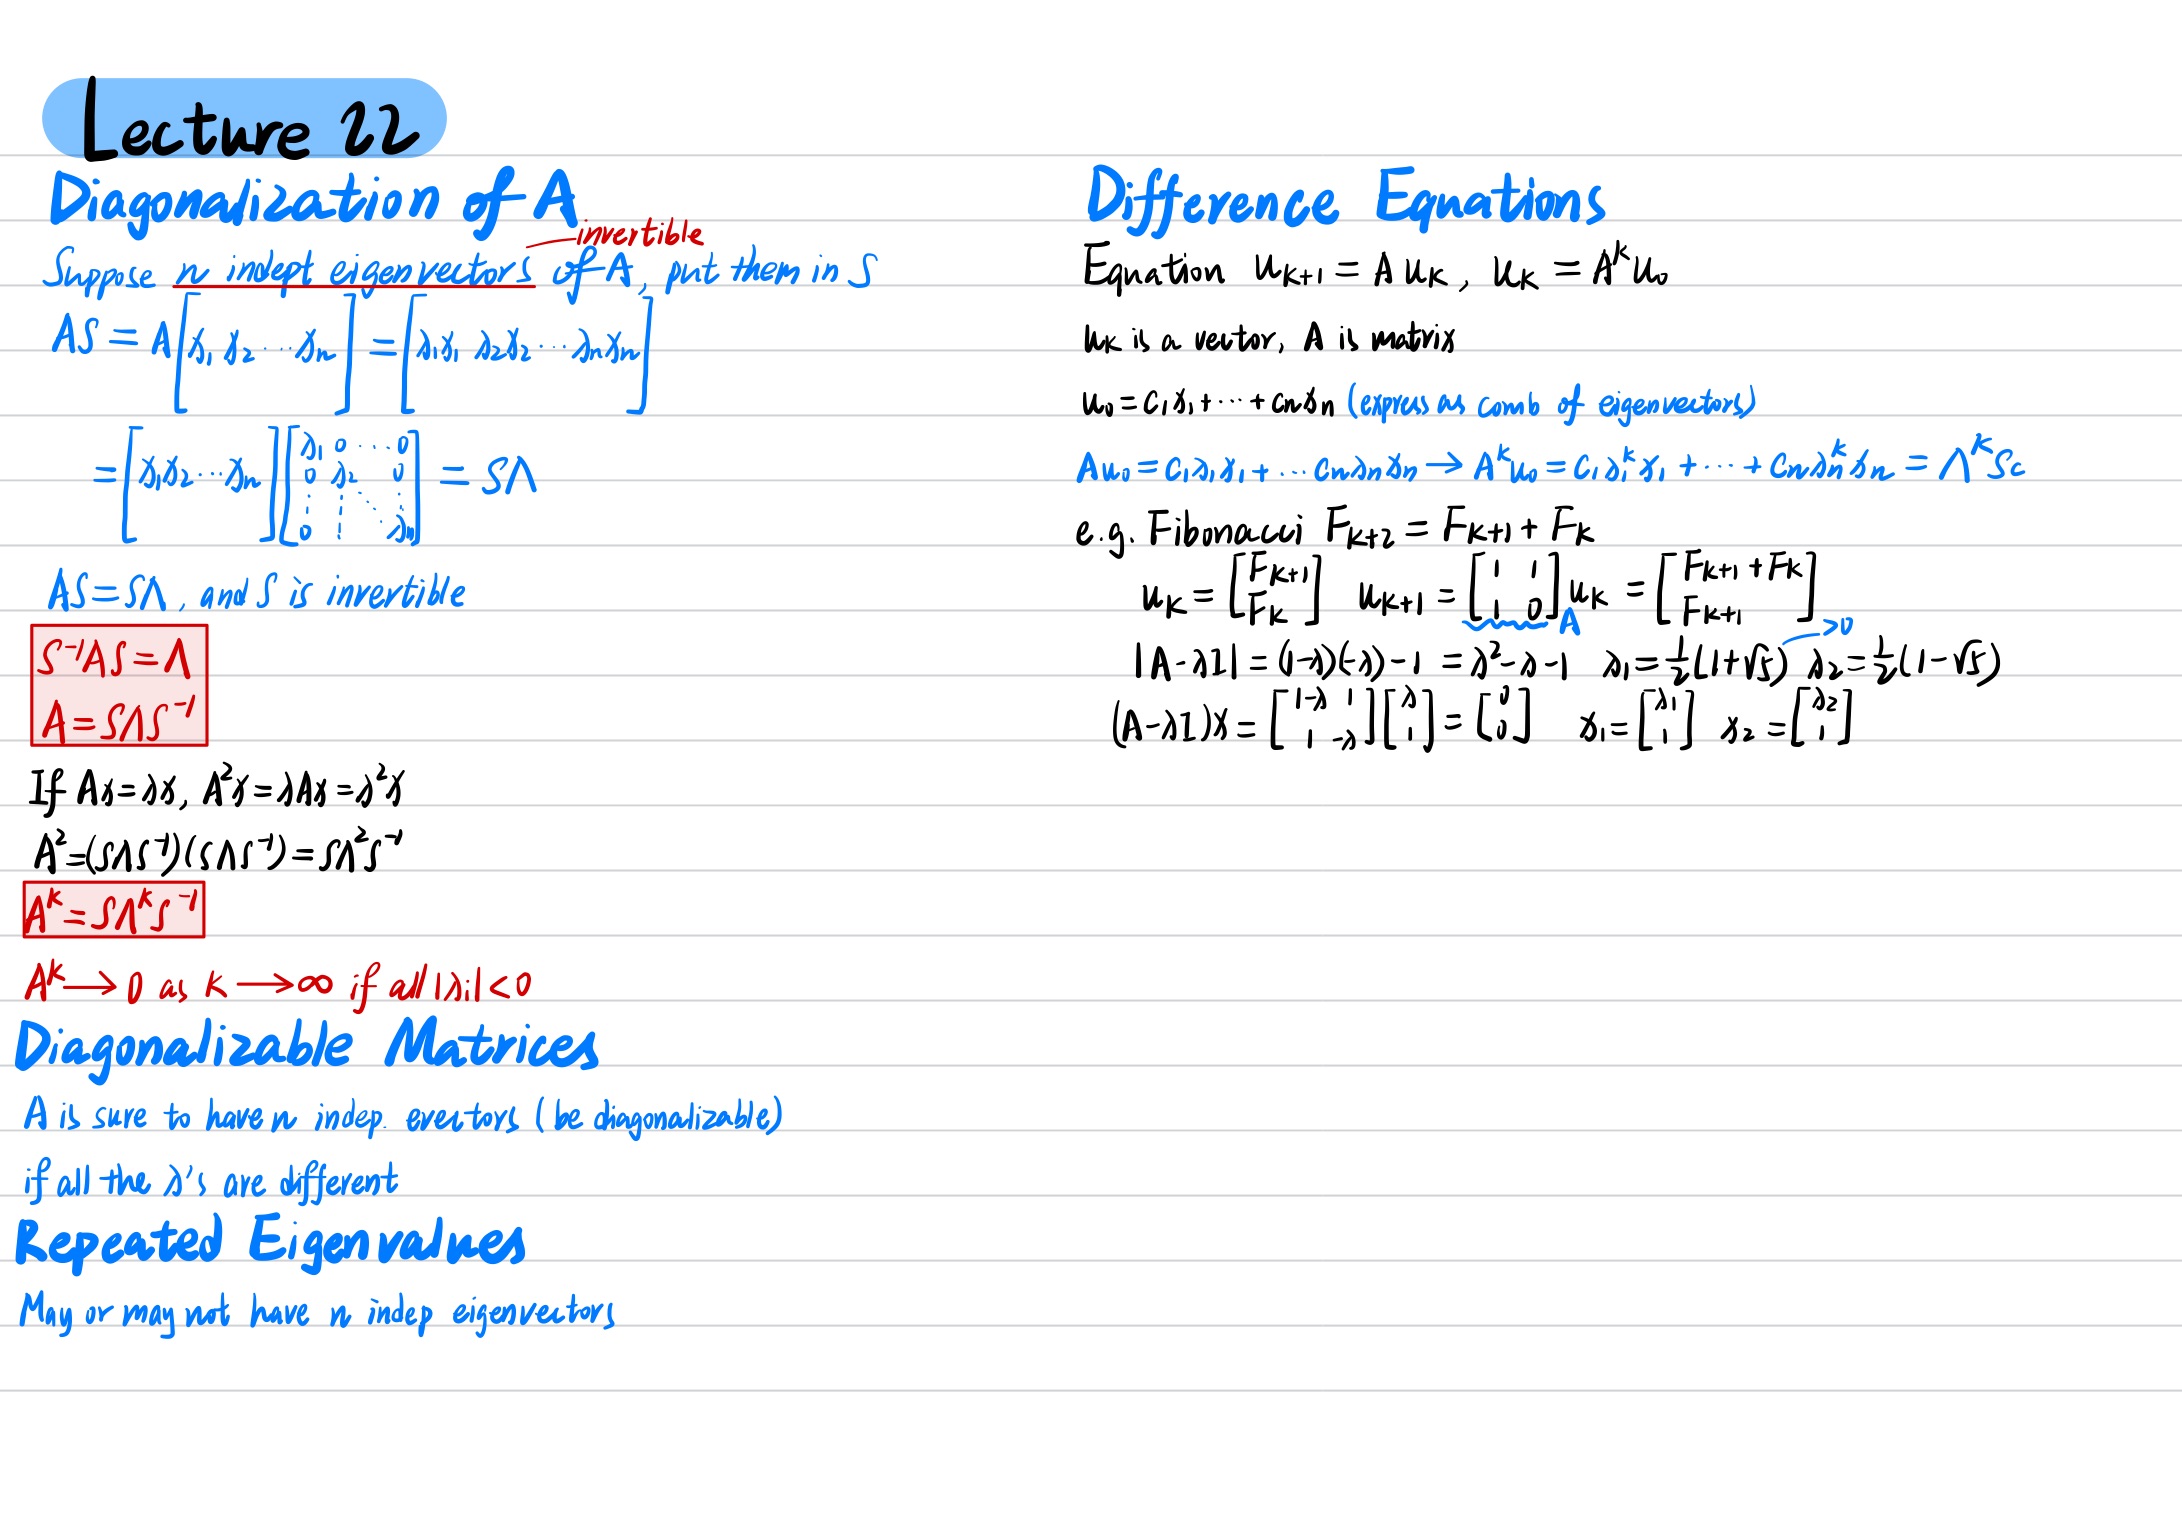 Lecture 22
Diagonalization of A
invertible
Suppose n indept eigenvectors of A, put them in S
AS = A[x₁ x₂ ⋯ xₙ] = [λ₁x₁ λ₂x₂ ⋯ λₙxₙ]
= [x₁ x₂ ⋯ xₙ][λ₁ 0 ⋯ 0; 0 λ₂ 0; ⋮ ⋮ ⋱ ⋮; 0 ⋮ λₙ] = SΛ
AS = SΛ, and S is invertible
S⁻¹AS = Λ
A = SΛS⁻¹
If Ax = λx, A²x = λAx = λ²x
A² = (SΛS⁻¹)(SΛS⁻¹) = SΛ²S⁻¹
Aᵏ = SΛᵏS⁻¹
Aᵏ → 0 as k → ∞ if all |λi| < 0
Diagonalizable Matrices
A is sure to have n indep. evectors (be diagonalizable)
if all the λ's are different
Repeated Eigenvalues
May or may not have n indep eigenvectors
Difference Equations
Equation uₖ₊₁ = A uₖ, uₖ = Aᵏu₀
uₖ is a vector, A is matrix
u₀ = c₁x₁ + ⋯ + cₙxₙ (express as comb of eigenvectors)
Au₀ = c₁λ₁x₁ + ⋯ cₙλₙxₙ → Aᵏu₀ = c₁λ₁ᵏx₁ + ⋯ + cₙλₙᵏxₙ = ΛᵏSc
e.g. Fibonacci Fₖ₊₂ = Fₖ₊₁ + Fₖ
uₖ = [Fₖ₊₁; Fₖ] uₖ₊₁ = [1 1; 1 0] uₖ = [Fₖ₊₁ + Fₖ; Fₖ₊₁]
A
>0
|A - λI| = (1-λ)(-λ) - 1 = λ² - λ - 1 λ₁ = ½(1+√5) λ₂ = ½(1-√5)
(A - λI)x = [1-λ 1; 1 -λ][λ; 1] = [0; 0] x₁ = [λ₁; 1] x₂ = [λ₂; 1]